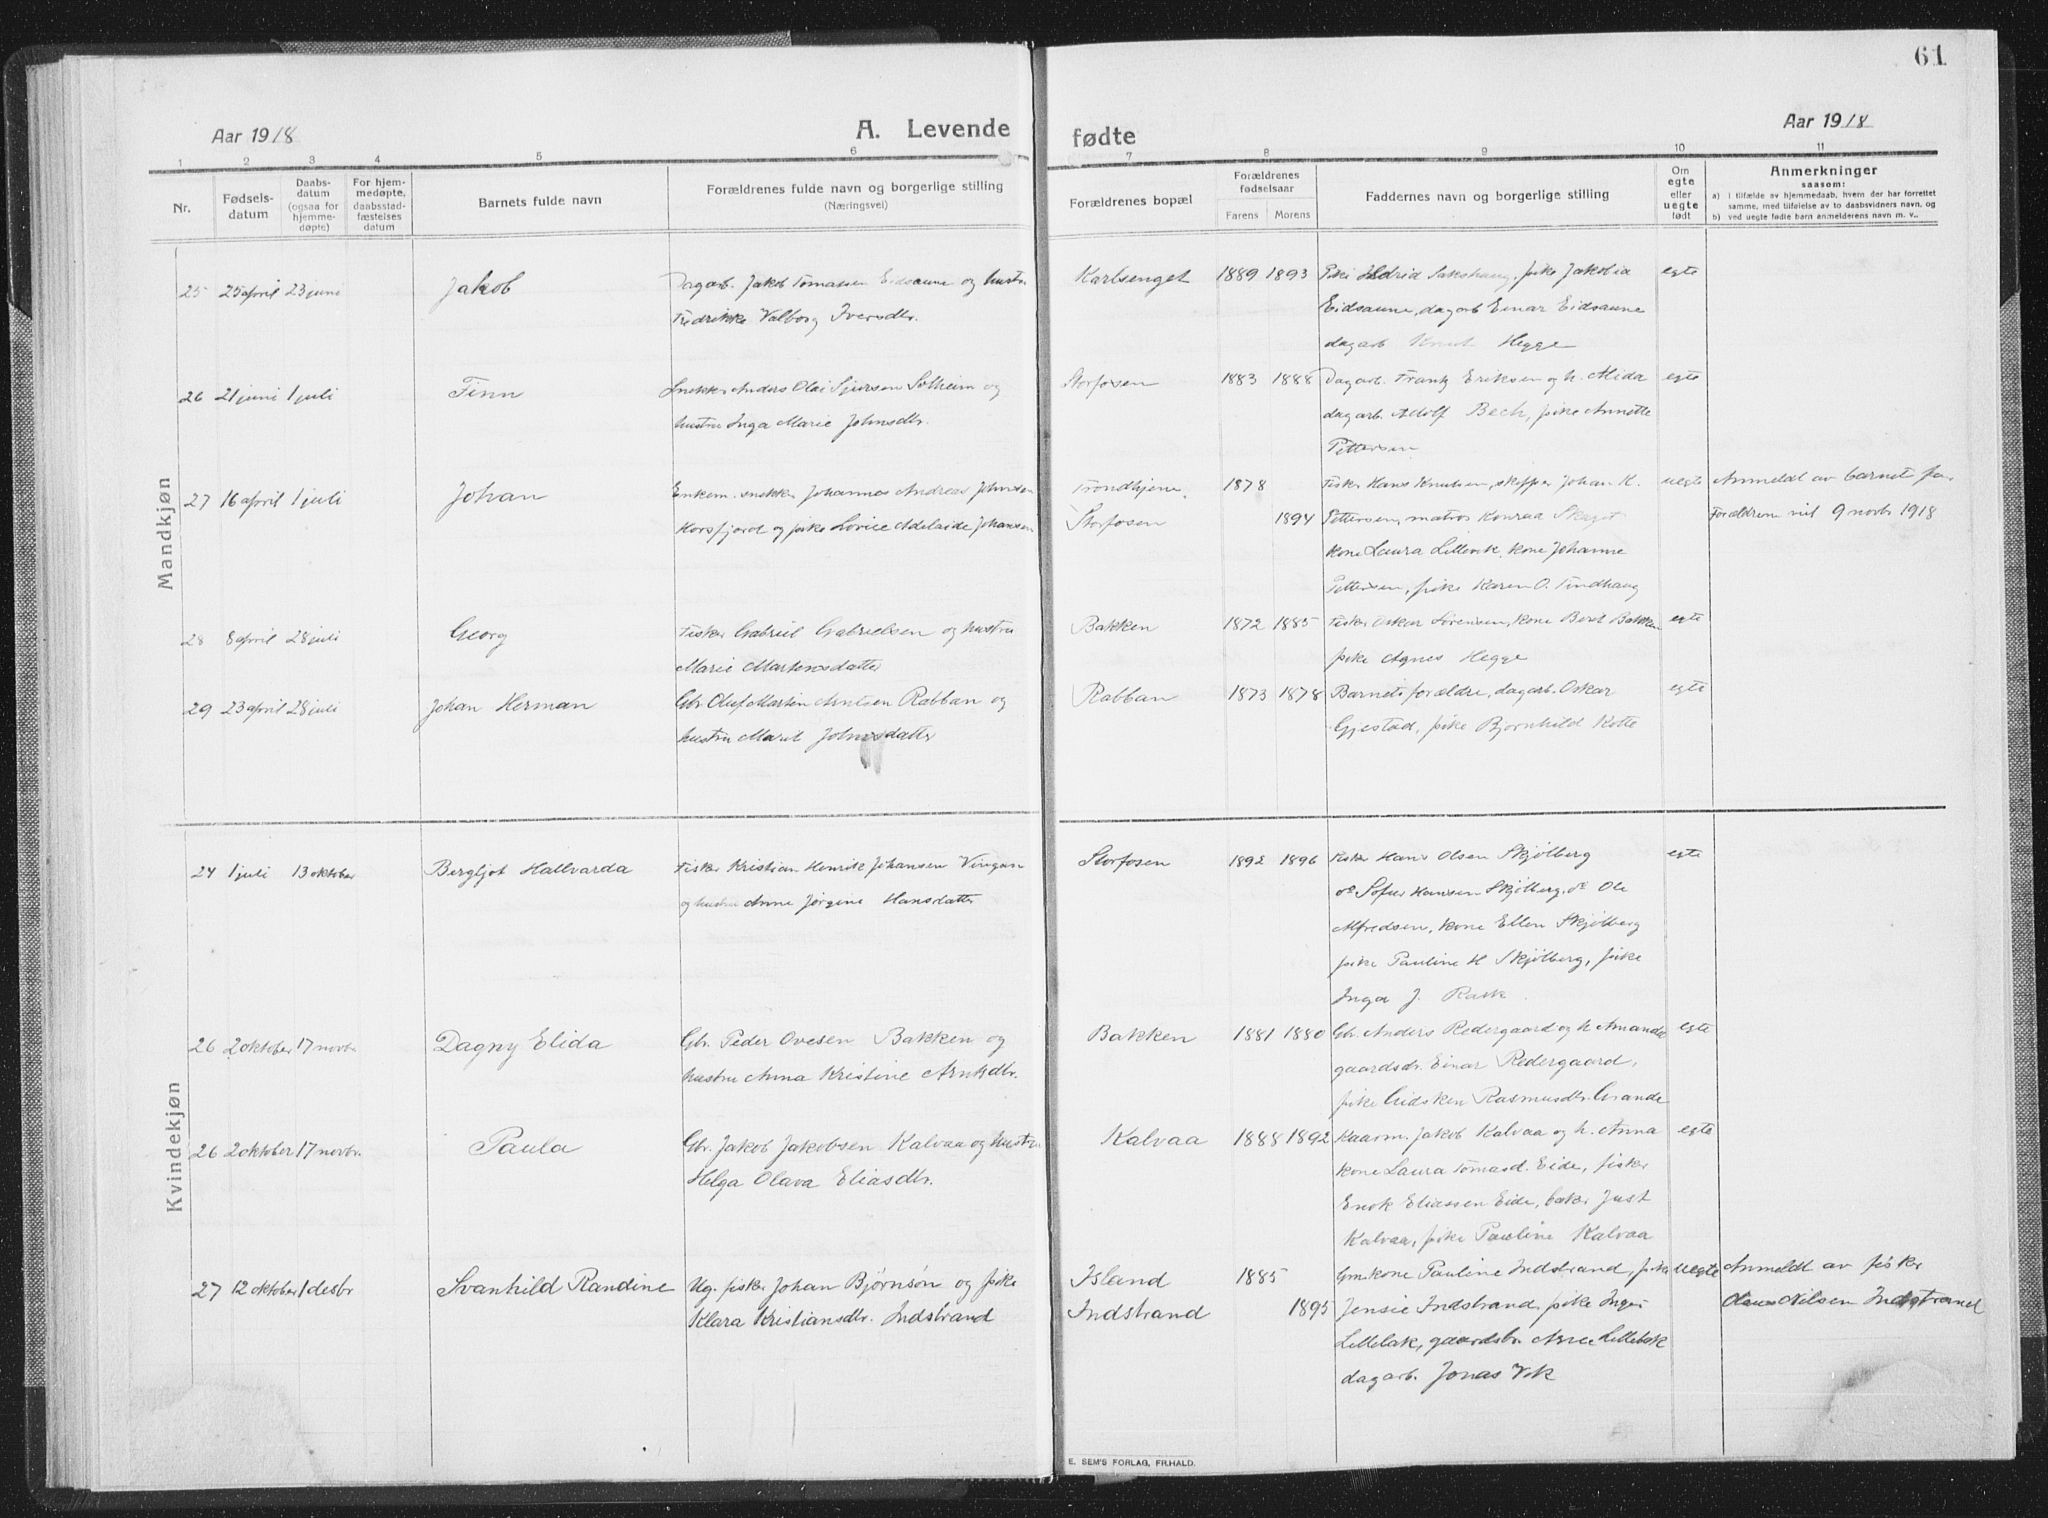 61
Aar 1918
A. Levende fødte
Aar 1918
1 2 3 4 5 6 7 8 9 10 11
Nr.
Fødsels-
datum
Daabs-
datum
(ogsaa for
hjemme-
døpte)
For hjem-
medøpte,
daabsstad-
fæstelses
datum
Barnets fulde navn
Forældrenes fulde navn og borgerlige stilling
(Næringsvei)
Forældrenes bopæl
Forældrenes
fødselsaar
Farens Morens
Faddernes navn og borgerlige stilling
Om
egte
eller
uegte
født
Anmerkninger
saasom:
a) i tilfælde av hjemmedaab, hvem der har forrettet
samme, med tilføielse av to daabsvidners navn, og
b) ved uegte fødte barn anmelderens navn m. v..
Mandkjøn
25 25 april 23 june Jakob Dagarb. Jakob Tomassen Eidsaune og hustru Karlsenget 1889 1893 Pike Sakshaug, pike Jakobia egte
Fredrikke Valborg Iversdtr. Eidsaune, dagarb Einar Eidsaune
dagarb Knut Hegge
26 21 juni 1 juli Finn Snekker Anders Olai Sjursen Solheim og Storfosen 1883 1888 Dagarb. Frantz Eriksen og h. Alida egte
hustru Inga Marie Johnsdtr. dagarb. Adolf Bech, pike Annette
Pettersen
27 16 april 1 juli Johan Enkem. snekker Johannes Andreas Johnsen Trondhjem 1878 Fisker Hans Knutsen, skipper Johan K. uegte Anmeldt av barnets far
Horsfjord og pike Lovise Adelaide Johansen Storfosen 1894 Pettersen, matros Konrad Skaget Forældrene viet 9 novbr 1918
kone Laura Lillevik, kone Johanne
Pettersen, pike Karen O. Tindhaug
28 8 april 28 juli Georg Fisker Gabriel Gabrielsen og hustru Bakken 1872 1885 Fisker Oskar Sørensen, kone Berit Bakken egte
Marie Martensdatter pike Agnes Hegge
29 23 april 28 juli Johan Herman Gbr. Oluf Martin Arntsen Rabban og Rabban 1873 1878 Barnets forældre, dagarb. Oskar egte
hustru Marit Johnsdatter Gjestad, pike Bjørnhild Kotte
Kvindekjøn
24 1 juli 13 oktober Bergljot Hallvarda Fisker Kristian Henrik Johansen Vingan Storfosen 1892 1896 Fisker Hans Olsen Skjølberg egte
og hustru Anne Jørgine Hansdatter do Sofus Hansen Skjølberg, do Ole
Alfredsen, kone Ellen Skjølberg
pike Pauline H Skjølberg, pike
Inga J. Rask
26 2 oktober 17 novbr. Dagny Elida Gbr. Peder Ovesen Bakken og Bakken 1881 1880 Gbr. Anders Redergaard og h. Amanda egte
hustru Anna Kristine Arntsdtr. gaardsdr. Einar Redergaard,
pike Gidsken Rasmusdtr. Grande
26 2 oktober 17 novbr. Paula Gbr. Jakob Jakobsen Kalvaa og hustru Kalvaa 1888 1892 Kaarm. Jakob Kalvaa og h. Anna egte
Helga Olava Eliasdtr. kone Laura Tomasd. Eide, fisker
Enok Eliassen Eide, baker Just
Kalvaa, pike Pauline Kalvaa
27 12 oktober 1 desbr Svanhild Randine Ug. fisker Johan Bjørnsøn og pike Island 1885 Gm. kone Pauline Indstrand, pike uegte Anmeldt av fisker
Klara Kristiansdtr. Indstrand Indstrand 1895 Jensie Indstrand, pike Inger Olaus Nilsen Indstrand
gaardsbr. Arne Lillebak
dagarb. Jonas Vik
E. SEM'S FORLAG, FR.HALD.